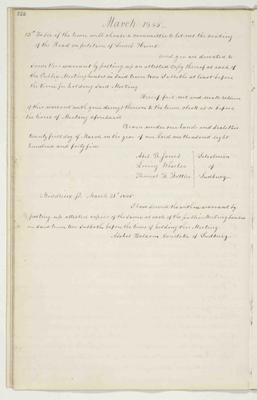 March 1845.
To see if the town will choose a committee to let out the
of the Road on petition of
And you are directed to
serve this warrant by posting up an attested copy thereof at each of
the Public Meeting houses in said town two Sabbaths at least before
the time for holding said Meeting
Hereof fail not and make return
of this warrant with your doings thereon to the town clerk at or before
the time of Meeting aforesaid.
Given under our hands and seals this
twenty first day of March in the year of our Lord one thousand eight
hundred and forty five.
Selectmen
of
Sudbury
Middlesex ss. March 1845.
I have served the within warrant by
posting up attested copies of the same at each of the public Meeting houses
in said town two Sabbaths before the time of holding the Meeting.
Constable of Sudbury